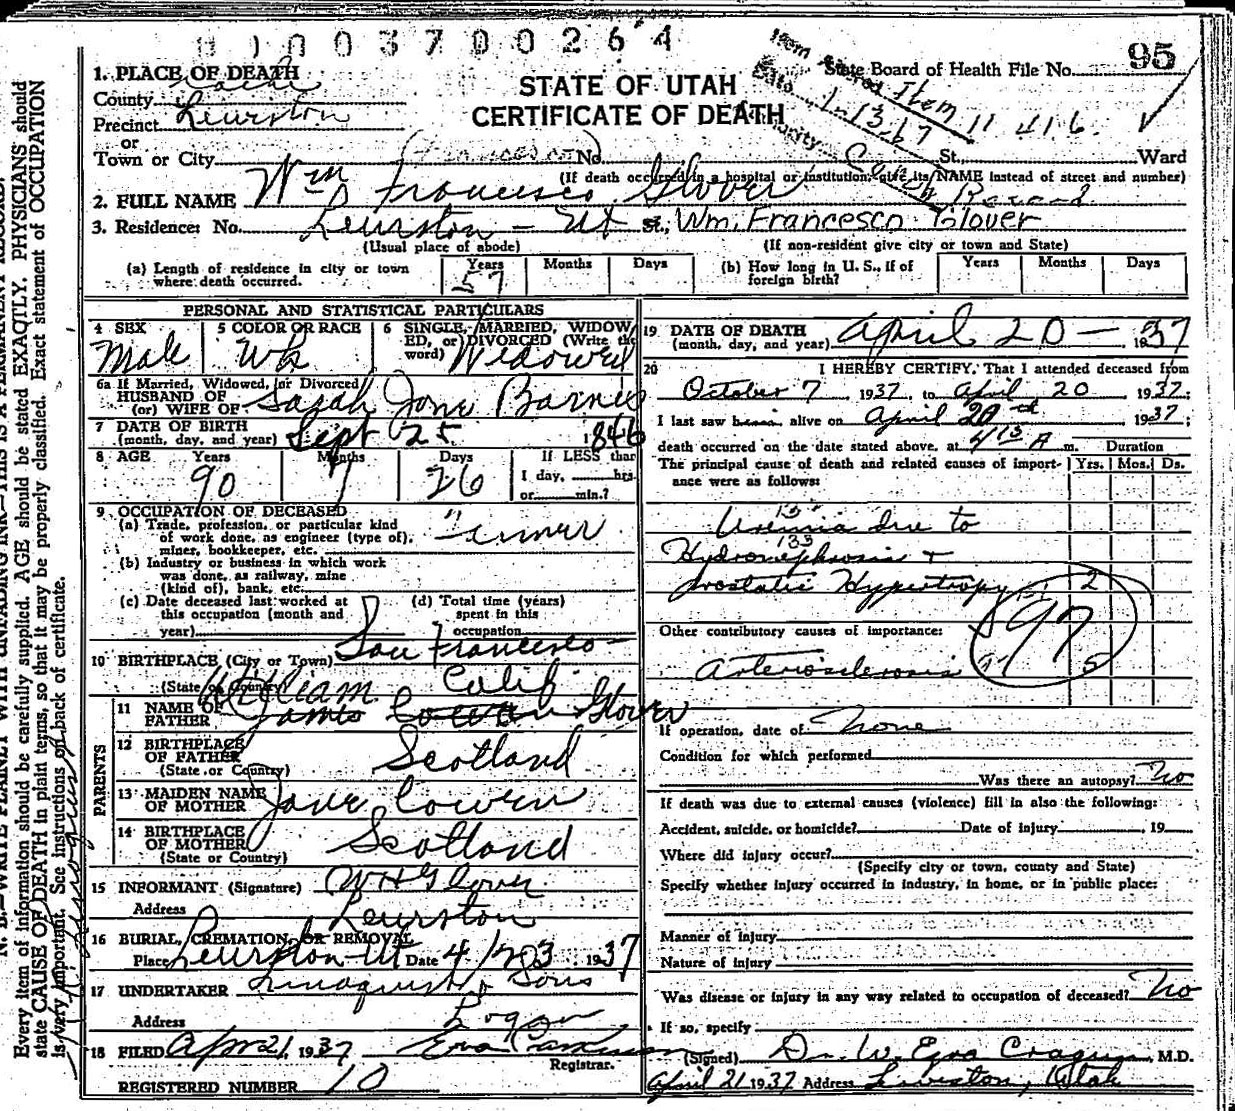 H 1 0 0 3 7 0 0 2 6 4
95
1. PLACE OF DEATH
County Cache
Precinct Lewiston
or
Town or City
STATE OF UTAH
CERTIFICATE OF DEATH
State Board of Health File No.
Item Altered Item 11 & 16
Date 1-13-67
Authority Church Record
(Francesco) No. St. Ward
(If death occurred in a hospital or institution, give its NAME instead of street and number)
2. FULL NAME Wm Francesco Glover
3. Residence: No. Lewiston - Ut St., Wm. Francesco Glover
(Usual place of abode) (If non-resident give city or town and State)
(a) Length of residence in city or town where death occurred. Years 57 Months Days
(b) How long in U. S., if of foreign birth? Years Months Days
PERSONAL AND STATISTICAL PARTICULARS
4 SEX Male
5 COLOR OR RACE Wh
6 SINGLE, MARRIED, WIDOWED, or DIVORCED (Write the word) Widowed
6a If Married, Widowed, or Divorced
HUSBAND OF
(or) WIFE OF Sarah Jane Barnes
7 DATE OF BIRTH
(month, day, and year) Sept 25 1846
8 AGE Years 90 Months 7 Days 26
If LESS than
1 day, hrs.
or min.?
9 OCCUPATION OF DECEASED
(a) Trade, profession, or particular kind
of work done, as engineer (type of),
miner, bookkeeper, etc. Farmer
(b) Industry or business in which work
was done, as railway, mine
(kind of), bank, etc.
(c) Date deceased last worked at
this occupation (month and
year)
(d) Total time (years)
spent in this
occupation
10 BIRTHPLACE (City or Town) San Francisco
(State or Country) Calif
PARENTS
11 NAME OF FATHER William James Cowan Glover
12 BIRTHPLACE OF FATHER
(State or Country) Scotland
13 MAIDEN NAME OF MOTHER Jane Cowen
14 BIRTHPLACE OF MOTHER
(State or Country) Scotland
15 INFORMANT (Signature) W H Glover
Address Lewiston
16 BURIAL, CREMATION, OR REMOVAL
Place Lewiston Ut Date 4/23 1937
17 UNDERTAKER Lindquist & Sons
Address Logan
18 FILED Apr 21, 1937 Eva
Registrar.
REGISTERED NUMBER 10
19 DATE OF DEATH
(month, day, and year) April 20 - 1937
20 I HEREBY CERTIFY, That I attended deceased from
October 7, 1937, to April 20 1937;
I last saw him alive on April 20 1937;
death occurred on the date stated above, at 4/15 A m. Duration
The principal cause of death and related causes of importance were as follows: Yrs. Mos. Ds.
Uremia due to
133
Hydronephrosis +
Prostatic Hypertropy 2
Other contributory causes of importance:
Arteriosclerosis 97 5
97
If operation, date of None
Condition for which performed
Was there an autopsy? No
If death was due to external causes (violence) fill in also the following:
Accident, suicide, or homicide? Date of injury , 19
Where did injury occur?
(Specify city or town, county and State)
Specify whether injury occurred in industry, in home, or in public place:
Manner of injury
Nature of injury
Was disease or injury in any way related to occupation of deceased? No
If so, specify
(Signed) Dr. W. Ezra Cragun, M.D.
April 21 1937 Address Lewiston, Utah
N. B.—WRITE PLAINLY WITH UNFADING INK—THIS IS A PERMANENT RECORD.
Every item of information should be carefully supplied. AGE should be stated EXACTLY. PHYSICIANS should
state CAUSE OF DEATH in plain terms, so that it may be properly classified. Exact statement of OCCUPATION
is very important. See instructions on back of certificate.